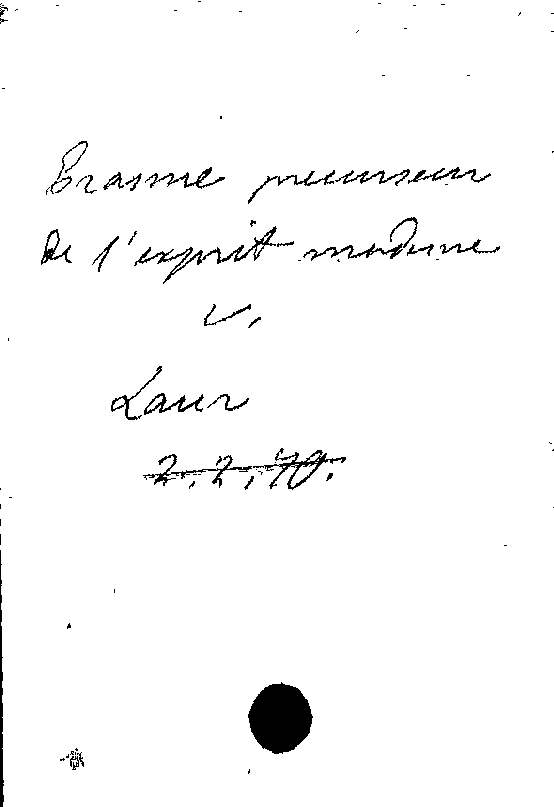 Erasme precurseur
de l'esprit moderne
v.
Laur
2.2.70.